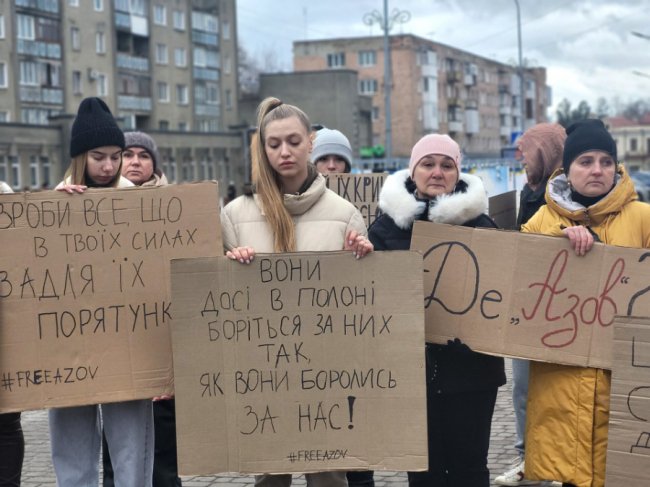 ЗРОБИ ВСЕ, ЩО
В ТВОЇХ СИЛАХ
ЗАДЛЯ ЇХ
ПОРЯТУНК
#FREEAZOV
ВОНИ
ДОСІ В ПОЛОНІ
БОРІТЬСЯ ЗА НИХ
ТАК,
ЯК ВОНИ БОРОЛИСЬ
ЗА НАС!
#FREEAZOV
ЇХ КРИ
Де „Азов“?